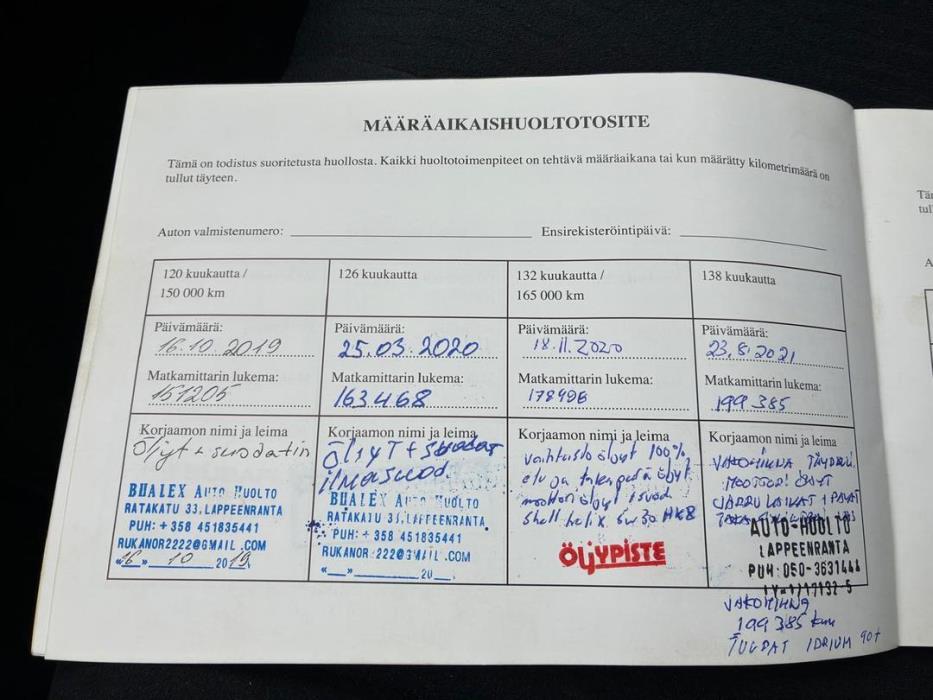 MÄÄRÄAIKAISHUOLTOTOSITE
Tämä on todistus suoritetusta huollosta. Kaikki huoltotoimenpiteet on tehtävä määräaikana tai kun määrätty kilometrimäärä on
tullut täyteen.
Auton valmistenumero:
Ensirekisteröintipäivä:
120 kuukautta /
150 000 km
Päivämäärä:
16.10.2019
Matkamittarin lukema:
151205
Korjaamon nimi ja leima
Öljyt + suodatin
BUALEX AUTO HUOLTO
RATAKATU 33, LAPPEENRANTA
PUH: +358 451835441
RUKANOR2222@GMAIL.COM
«16» 10 2019.
126 kuukautta
Päivämäärä:
25.03.2020
Matkamittarin lukema:
163468
Korjaamon nimi ja leima
ÖljyT + suodat
ilmasuod.
BUALEX AUTO HUOLTO
RATAKATU 33, LAPPEENRANTA
PUH: +358 451835441
RUKANOR2222@GMAIL.COM
«__»________20__.
132 kuukautta /
165 000 km
Päivämäärä:
18.11.2020
Matkamittarin lukema:
178996
Korjaamon nimi ja leima
vaihteisto öljyt 100%
etu ja takaperä öljyt
moottori öljyt + suod
shell helix 5w30 HX8
ÖljYPISTE
138 kuukautta
Päivämäärä:
23.8.2021
Matkamittarin lukema:
199385
Korjaamon nimi ja leima
JAKOHIHNA
MOOTTORI ÖLJYT
JARRU LAIKAT + PALAT
AUTO-HUOLTO
LAPPEENRANTA
PUH: 050-3631444
JAKOHIHNA
199385 km
TULPAT IDRIUM 90+
Täm
tul
A